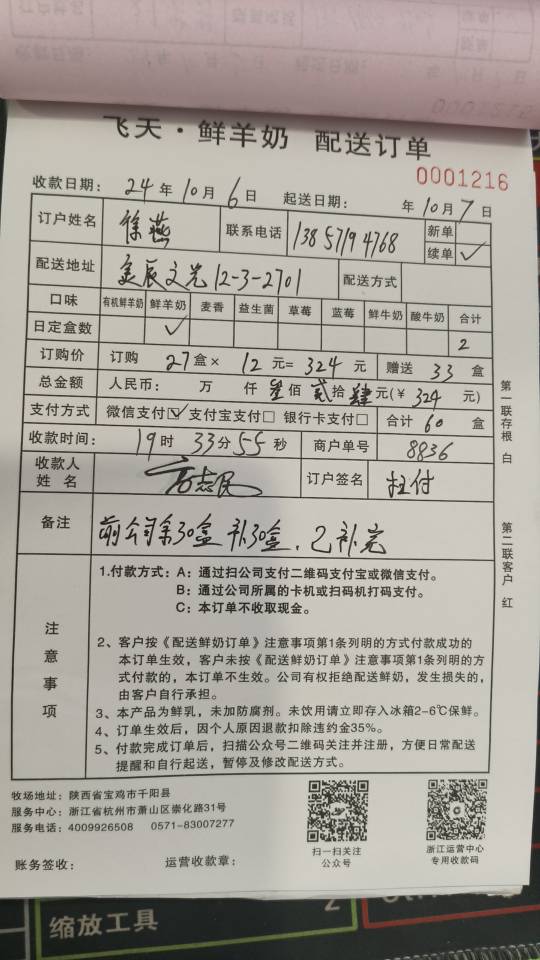 飞天·鲜羊奶 配送订单
0001216
收款日期: 24年10月6日 起送日期: 年10月7日
订户姓名 徐燕 联系电话 13857194768 新单
续单 ✓
配送地址 美辰文苑12-3-2701 配送方式
口味 有机鲜羊奶 鲜羊奶 麦香 益生菌 草莓 蓝莓 鲜牛奶 酸牛奶 合计
日定盒数 ✓ 2
订购价 订购 27盒× 12元= 324元 赠送 33盒
总金额 人民币: 万 仟 叁佰 贰拾 肆元(¥ 324 元)
支付方式 微信支付☑支付宝支付□ 银行卡支付□ 合计 60 盒
收款时间: 19时 33分 55秒 商户单号 8836
收款人
姓 名 订户签名 扫付
备注 前公司余30盒 补30盒.已补充
第一联存根 白
第二联客户 红
注意事项
1.付款方式: A: 通过扫公司支付二维码支付宝或微信支付。
B: 通过公司所属的卡机或扫码机打码支付。
C: 本订单不收取现金。
2、客户按《配送鲜奶订单》注意事项第1条列明的方式付款成功的
本订单生效,客户未按《配送鲜奶订单》注意事项第1条列明的方
式付款的,本订单不生效。公司有权拒绝配送鲜奶,发生损失的,
由客户自行承担。
3、本产品为鲜乳,未加防腐剂。未饮用请立即存入冰箱2-6℃保鲜。
4、订单生效后,因个人原因退款扣除违约金35%。
5、付款完成订单后,扫描公众号二维码关注并注册,方便日常配送
提醒和自行起送,暂停及修改配送方式。
牧场地址: 陕西省宝鸡市千阳县
服务中心: 浙江省杭州市萧山区崇化路31号
服务电话: 4009926508 0571-83007277
扫一扫关注
公众号
浙江运营中心
专用收款码
账务签收: 运营收款章:
缩放工具